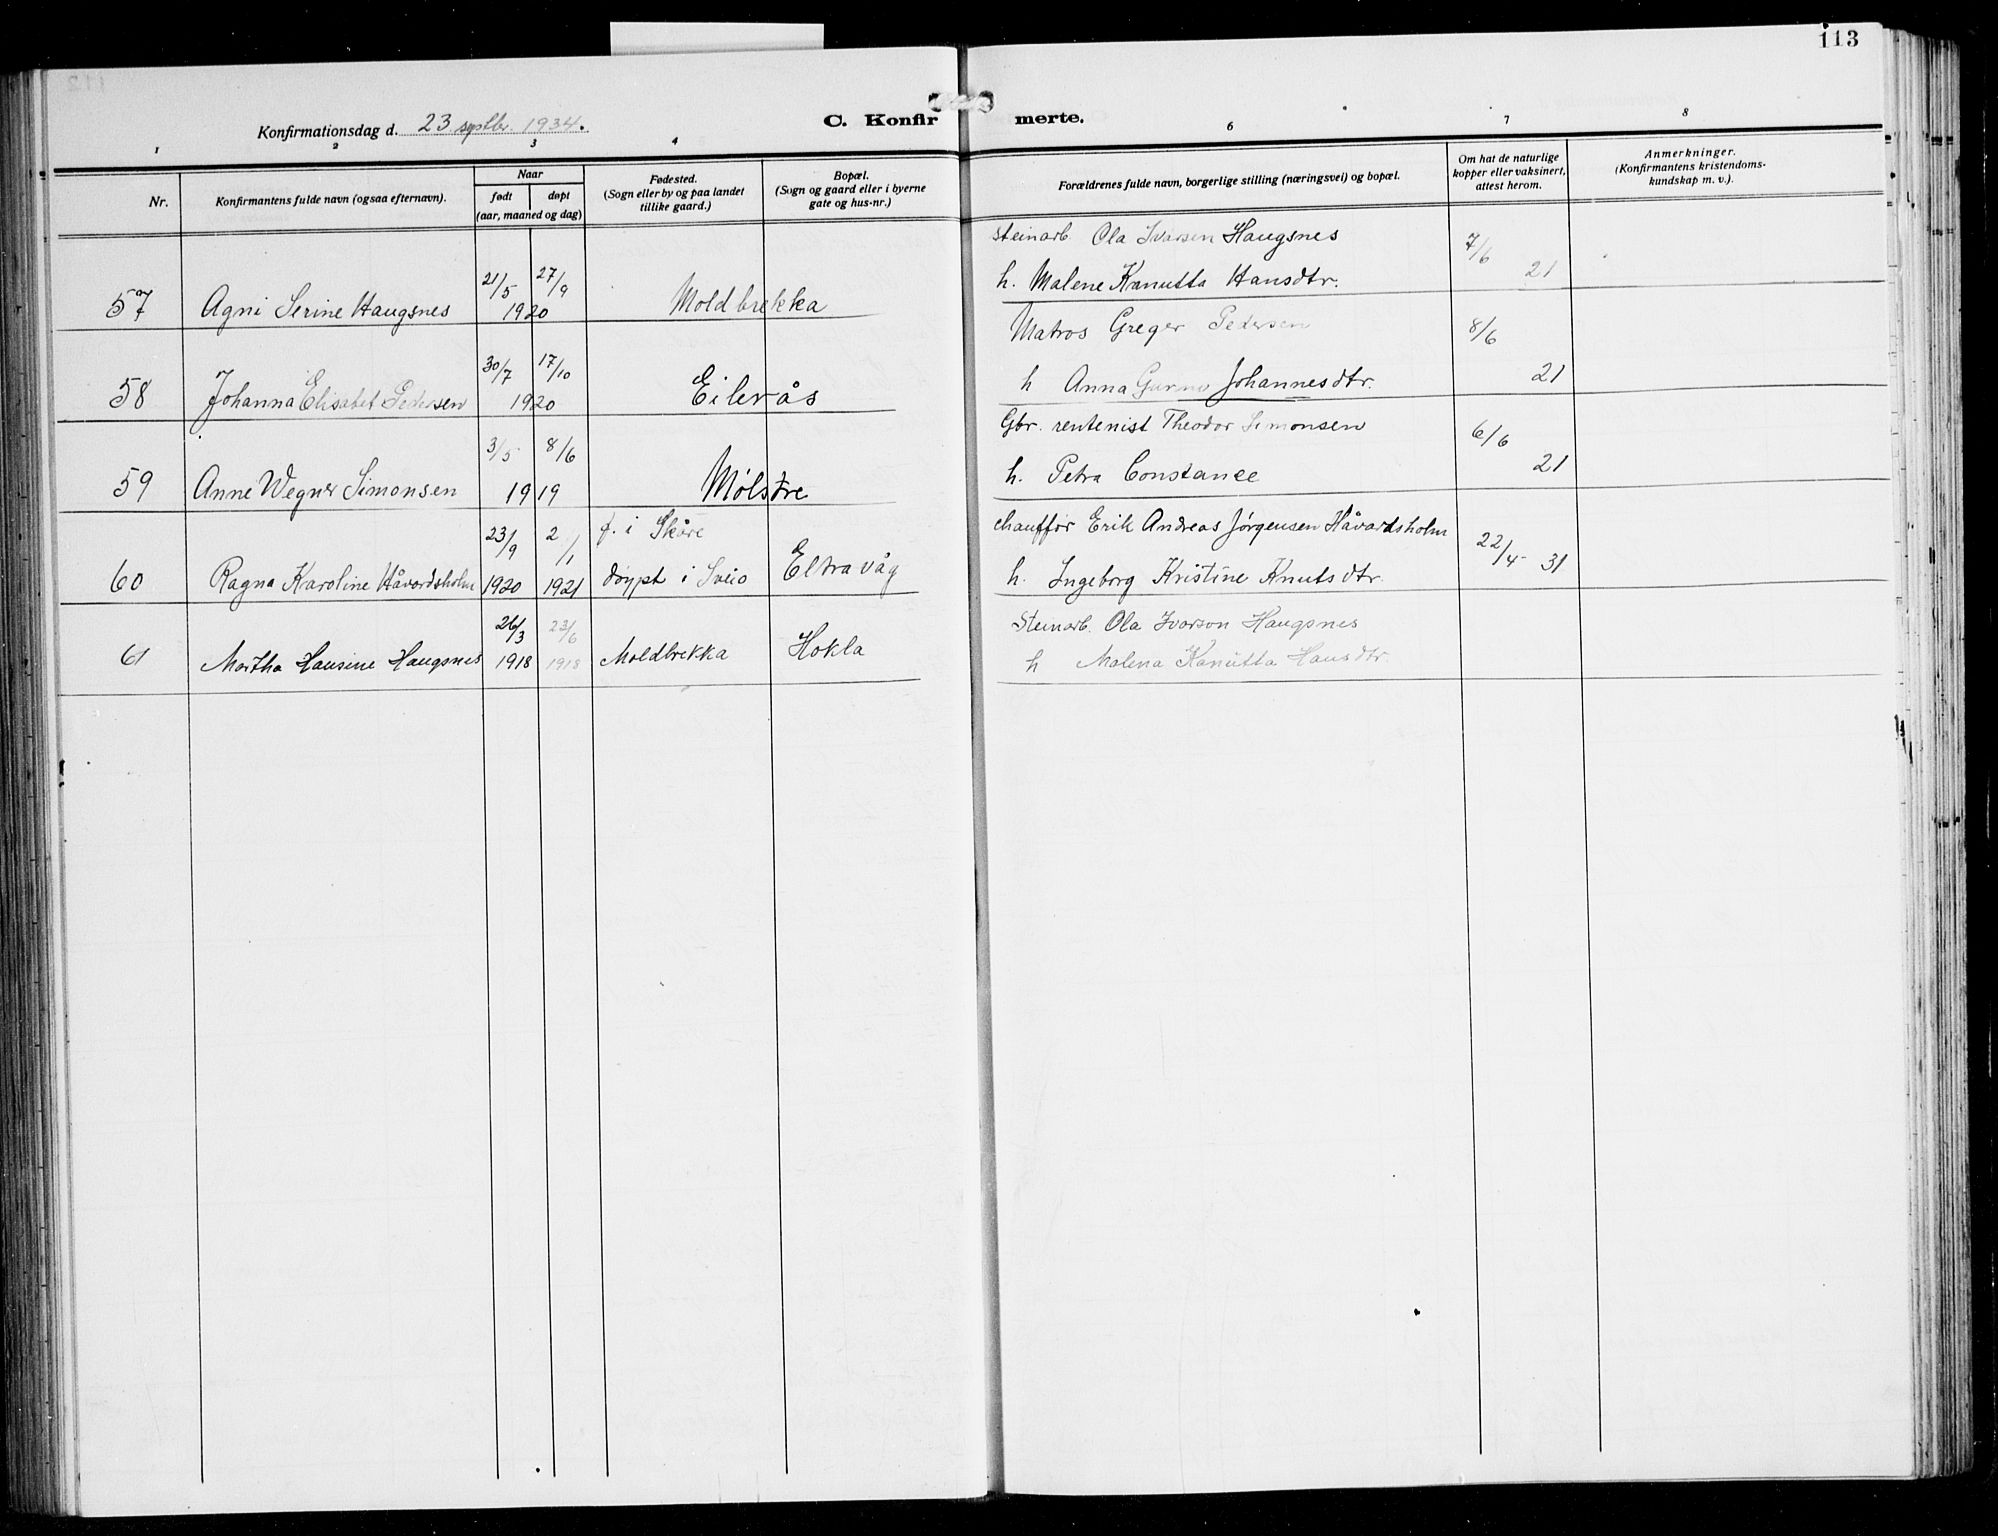 113
Konfirmationsdag d. 23 septbr. 1934.
C. Konfirmerte.
1 2 3 4 6 7 8
Nr.
Konfirmantens fulde navn (ogsaa efternavn).
Naar
født
døpt
(aar, maaned og dag)
Fødested.
(Sogn eller by og paa landet
tillike gaard.)
Bopæl.
(Sogn og gaard eller i byerne
gate og hus-nr.)
Forældrenes fulde navn, borgerlige stilling (næringsvei) og bopæl.
Om hat de naturlige
kopper eller vaksinert,
attest herom.
Anmerkninger.
(Konfirmantens kristendoms-
kundskap m. v.).
steinarb. Ola Ivarsen Haugsnes 7/6
21/5 27/9 h. Malene Kanutta Hansdtr. 21
57 Agni Serine Haugsnes 1920 Moldbrekka
Matros Greger Pedersen 8/6
30/7 17/10 h Anna Johannesdtr. 21
58 Johanna Elisabet Pedersen 1920 Eilerås
3/5 8/6 Gbr. rentenist Theodor Simonsen 6/6
59 Anne Wegner Simonsen 1919 Mølstre h. Petra Constance 21
23/9 2/1 f. i Skåre chauffør Erik Andreas Jørgensen Håvardsholm 22/4 31
60 Ragna Karoline Håvardsholm 1920 1921 døypt i Sveio Eltravåg h. Ingeborg Kristine Knutsdtr.
26/3 23/6 Steinarb. Ola Ivarson Haugsnes
61 Martha Hansine Haugsnes 1918 1918 Moldbrekka Hokla h Malena Kanutta Hansdtr.